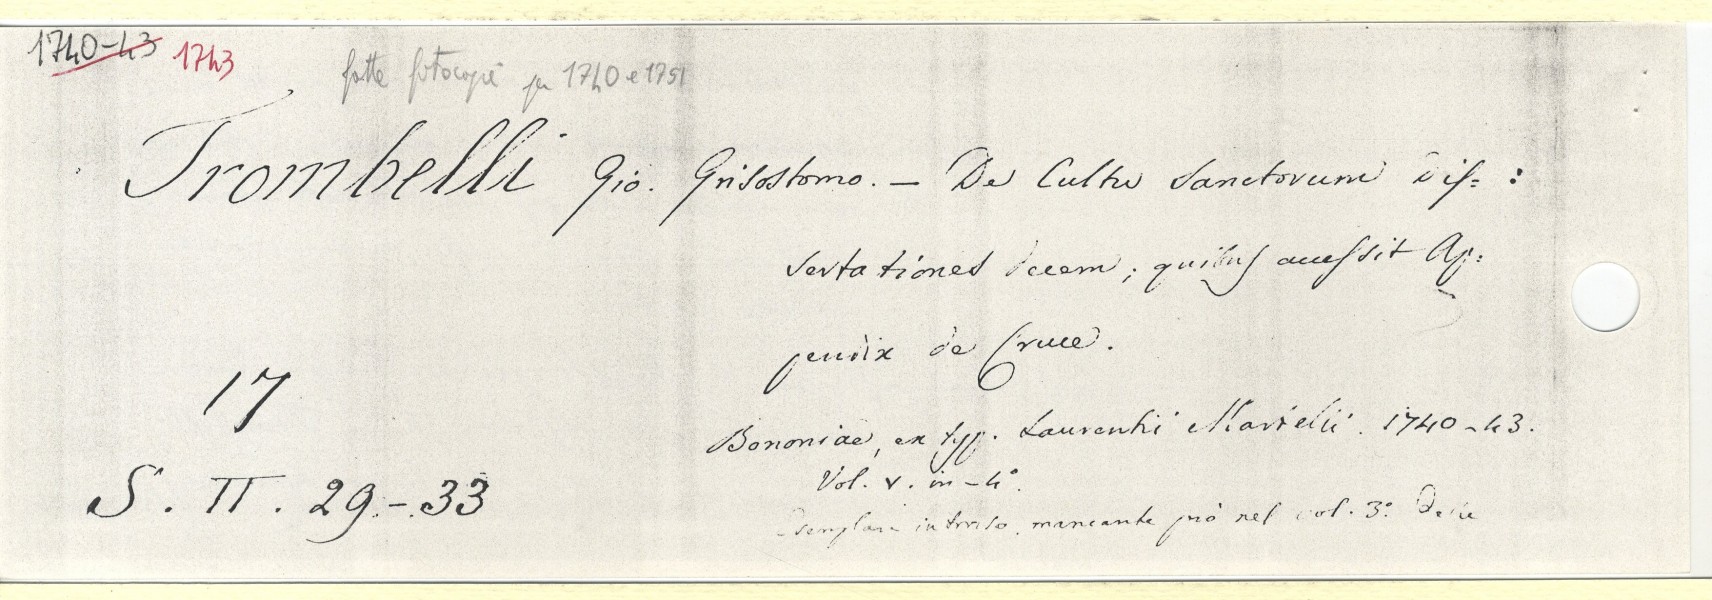 1740-43 1743
fatte fotocopie per 1740 e 1751
Trombelli Gio. Grisostomo. — De Cultu Sanctorum Dis= :
sertationes decem; quibus accessit Ap=
pendix de Cruce.
17
Bononiae, ex typ. Laurentii Martelli. 1740-43.
Vol. V. in-4°.
S. II. 29.-.33
Esemplare intonso, mancante però nel vol. 3° delle